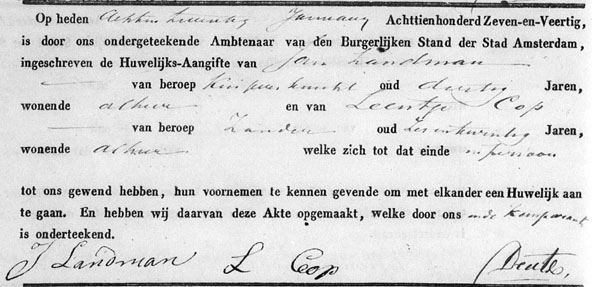 Op heden Achtien twintig Januarij Achttienhonderd Zeven-en-Veertig,
is door ons ondergeteekende Ambtenaar van den Burgerlijken Stand der Stad Amsterdam,
ingeschreven de Huwelijks-Aangifte van Jan Landman
van beroep oud dertig Jaren,
wonende alhier en van Leentje Cop
van beroep Zonder oud zes en twintig Jaren,
wonende alhier welke zich tot dat einde in persoon
tot ons gewend hebben, hun voornemen te kennen gevende om met elkander een Huwelijk aan
te gaan. En hebben wij daarvan deze Akte opgemaakt, welke door ons en de komparanten
is onderteekend.
J Landman L Cop